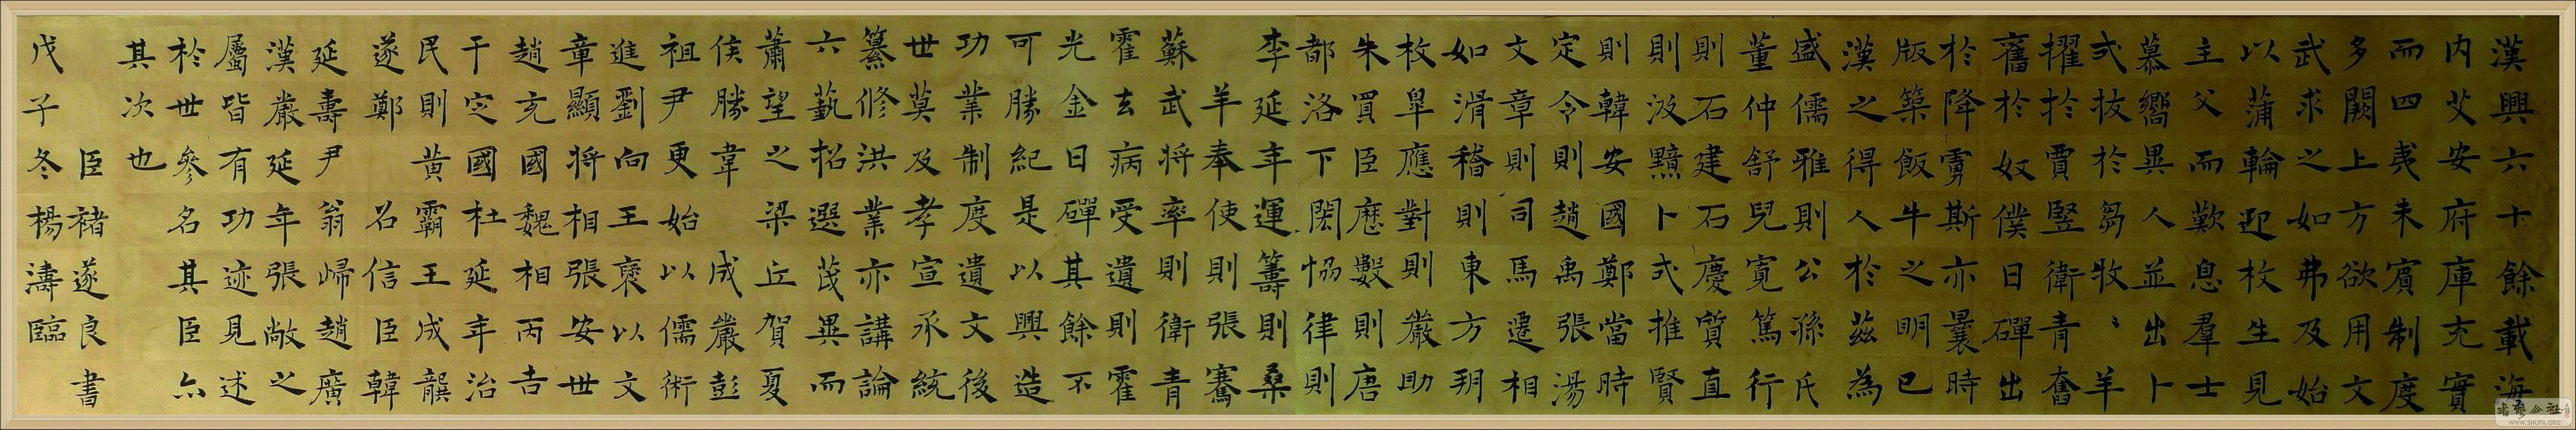 漢興六十餘載海
内艾安府庫充實
而四夷未賔制度
多闕上方欲用文
武求之如弗及始
以蒲輪迎枚生見
主父而歎息羣士
慕嚮異人並出卜
式拔於芻牧〻羊
擢於賈豎衛青奮
舊於奴僕日磾出
於降虜斯亦曩時
版築飯牛之明已
漢之得人於茲為
盛儒雅則公孫氏
董仲舒兒寬篤行
則石建石慶質直
則汲黯卜式推賢
則韓安國鄭當時
定令則趙禹張湯
文章則司馬遷相
如滑稽則東方朔
枚皐應對則嚴助
朱買臣歷數則唐
都洛下閎恊律則
李延年運籌則桑
羊奉使則張騫
蘇武將率則衛青
霍去病受遺則霍
光金日磾其餘不
可勝紀是以興造
功業制度遺文後
世莫及孝宣承統
纂修洪業亦講論
六藝招選茂異而
蕭望之梁丘賀夏
侯勝韋成嚴彭
祖尹更始以儒術
進劉向王褒以文
章顯將相張安世
趙充國魏相丙吉
于定國杜延年治
民則黄霸王成龔
遂鄭召信臣韓
延壽尹翁歸趙廣
漢嚴延年張敞之
屬皆有功迹見述
於世參名其臣亦
其次也
臣褚遂良書
戊子冬楊濤臨
書藝公社
WWW.SHUFA.ORG